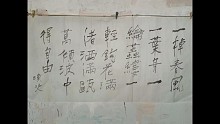 一棹春風
一葉舟一
綸繭縷一
輕鈎花滿
渚酒滿甌
萬頃波中
得自由